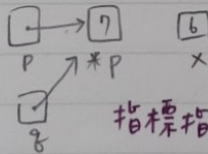 7 6
p *p x
q 指標指